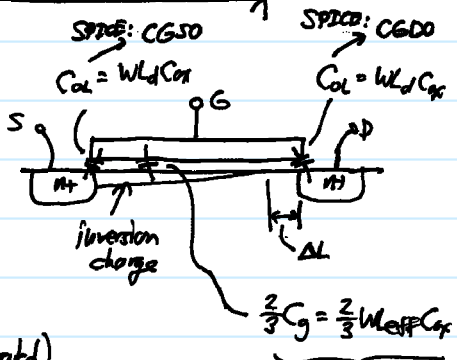 SPICE: CGSO
SPICE: CGDO
C_OL = WL_d C_ox
C_OL = WL_d C_ox
G
S
D
n+
n+
inversion
charge
ΔL
2/3 C_g = 2/3 WL_eff C_ox